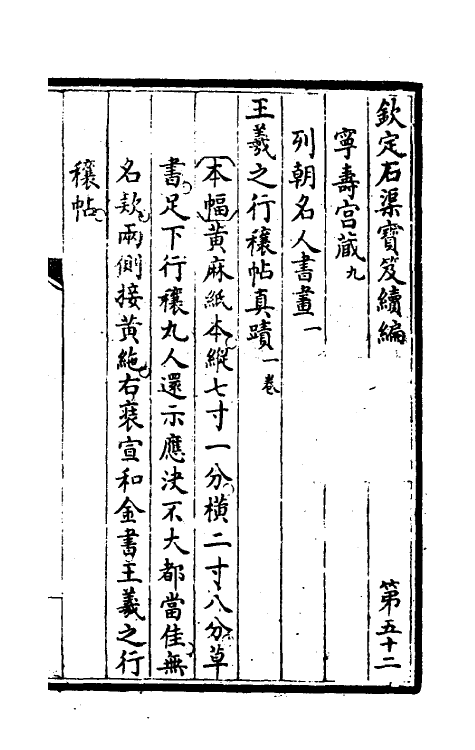 欽定石渠寶笈續編 第五十二
寧壽宮藏九
列朝名人書畫一
王羲之行穰帖真蹟一卷
本幅黃麻紙本縱七寸一分橫二寸八分草
書足下行穰九人還示應決不大都當佳無
名款兩側接黃絁右裱宣和金書王羲之行
穰帖